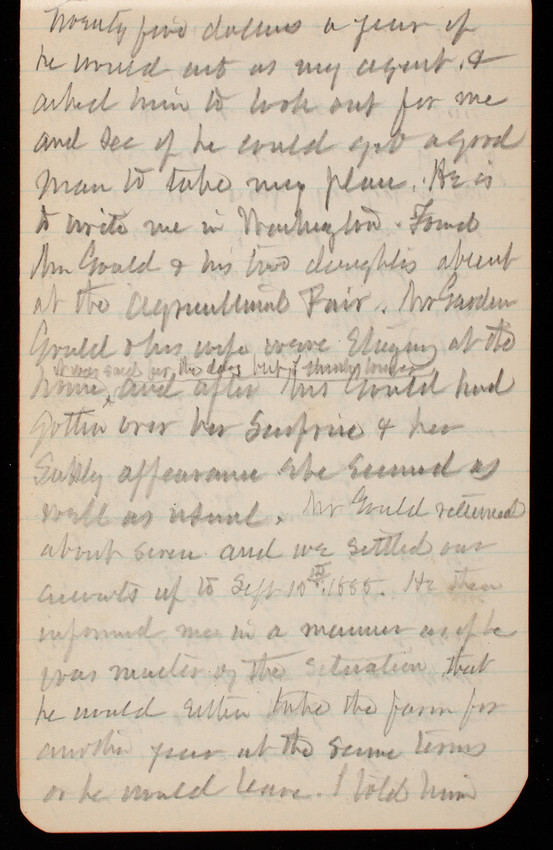 Twenty five dollars a year if
he would act as my agent, &
asked him to look out for me
and see if he could get a good
man to take my place. He is
to write me in Washington. Found
Mr Gould & his two daughters absent
at the Agricultural Fair. Mr Garden
Gould & his wife were staying at the
It was said for the days but I think longer
home, and after Mrs Gould had
gotten over her surprise & her
appearance she seemed as
well as usual. Mr Gould returned
about seven and we settled our
accounts up to Sept 10th 1888. He then
informed me in a manner as if he
was master of the situation that
he would either take the farm for
another year at the same terms
or he would leave. I told him